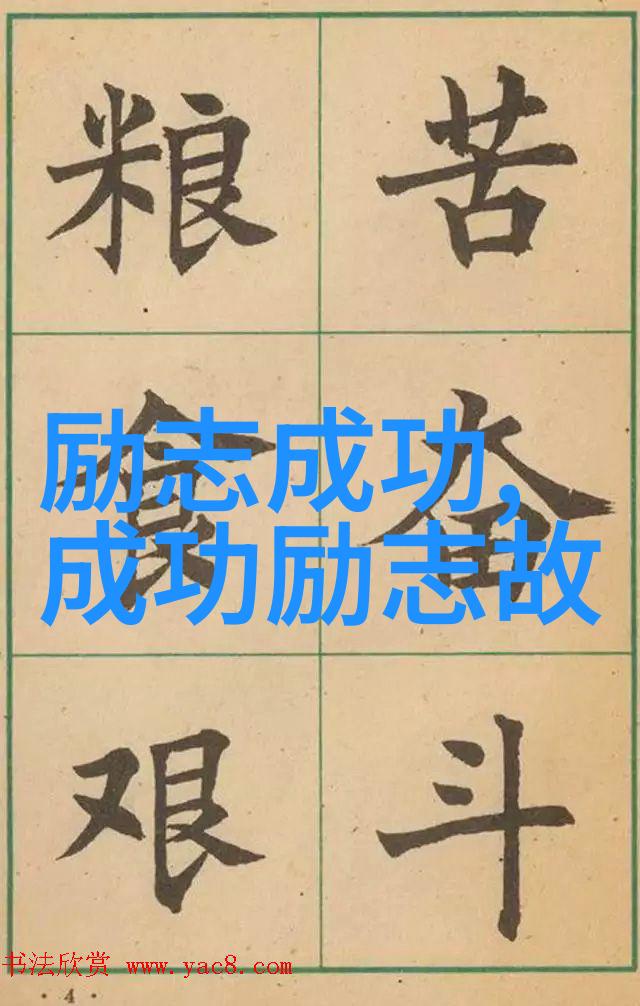 粮 苦
食 奋
艰 斗
励志成功,
成功励志故
书法欣赏 www.yac8.com
· 4 ·